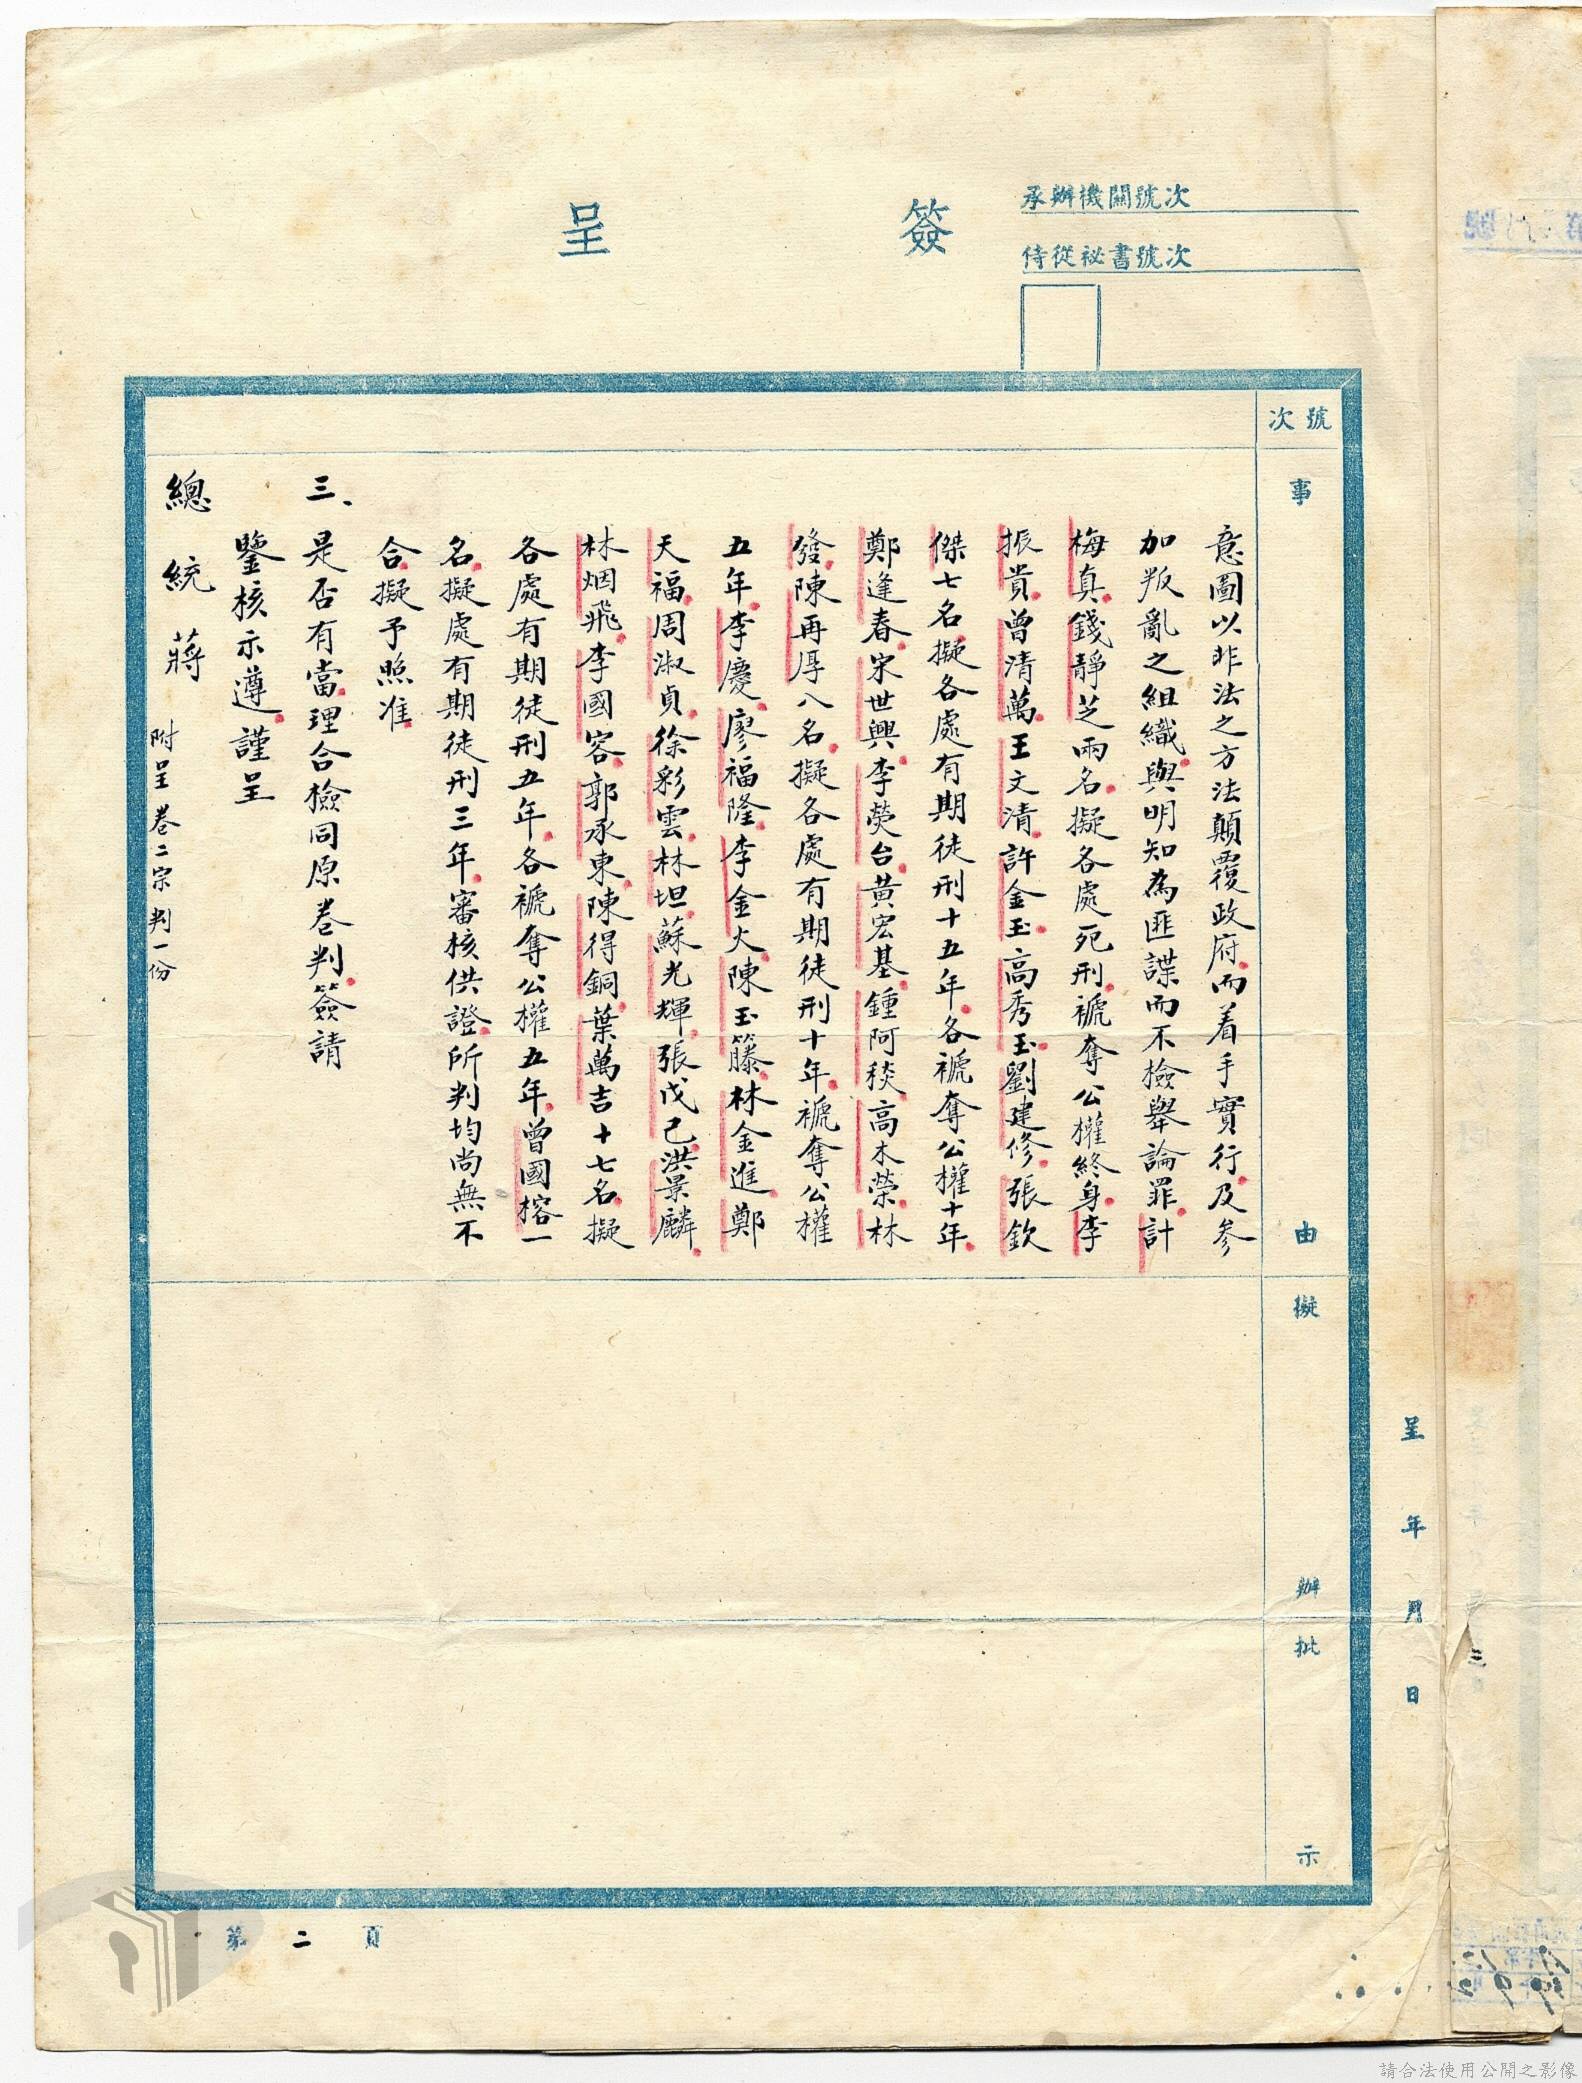 簽呈
承辦機關號次
侍從祕書號次
號次
事由
擬辦
批示
呈 年 月 日
意圖以非法之方法顛覆政府而着手實行及參
加叛亂之組織與明知為匪諜而不檢舉論罪計
梅真錢靜芝兩名擬各處死刑褫奪公權終身李
振貴曾清萬王文清許金玉高秀玉劉建修張欽
傑七名擬各處有期徒刑十五年各褫奪公權十年
鄭逢春宋世興李熒台黃宏基鍾阿 高木榮林
發陳再厚八名擬各處有期徒刑十年褫奪公權
五年李慶廖福隆李金火陳玉籐林金進鄭
天福周淑貞徐彩雲林坦蘇光輝張戊己洪景麟
林烟飛李國容郭承東陳得銅葉萬吉十七名擬
各處有期徒刑五年各褫奪公權五年曾國榕一
名擬處有期徒刑三年審核供證所判均尚無不
合擬予照准
三、是否有當理合檢同原卷判簽請
鑒核示遵謹呈
總統 蔣
附呈卷二宗判一份
第二頁
請合法使用公開之影像